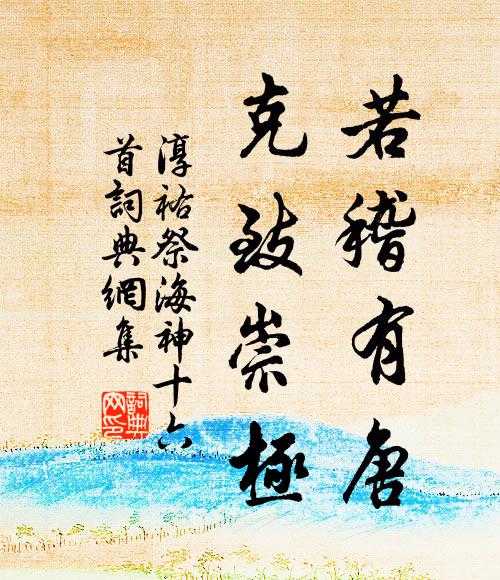 若稽有唐
克致崇極
淳祐祭海神十六
首詞典網集
詞典
网印